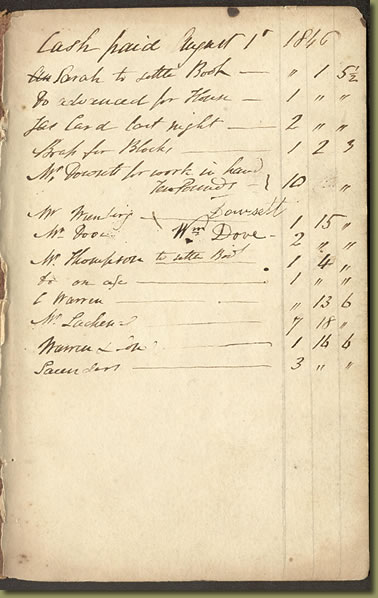 Cash paid August 1st 1846
Sarah to settle Book — " 1 5½
Do advanced for House — 1 " "
last night — 2 " "
Brass for Blocks — 1 2 3
Mr Dowsett for work in hand
Ten Pounds — 10 "
Mr Dowsett
1 15 "
Mr Dove Wm Dove - 2 " "
Mr Thompson to settle Book 1 4 "
do on a/c — 1 " "
C Warren — " 13 6
Mr — 7 18 "
Warren & — 1 16 6
Saunders — 3 " "